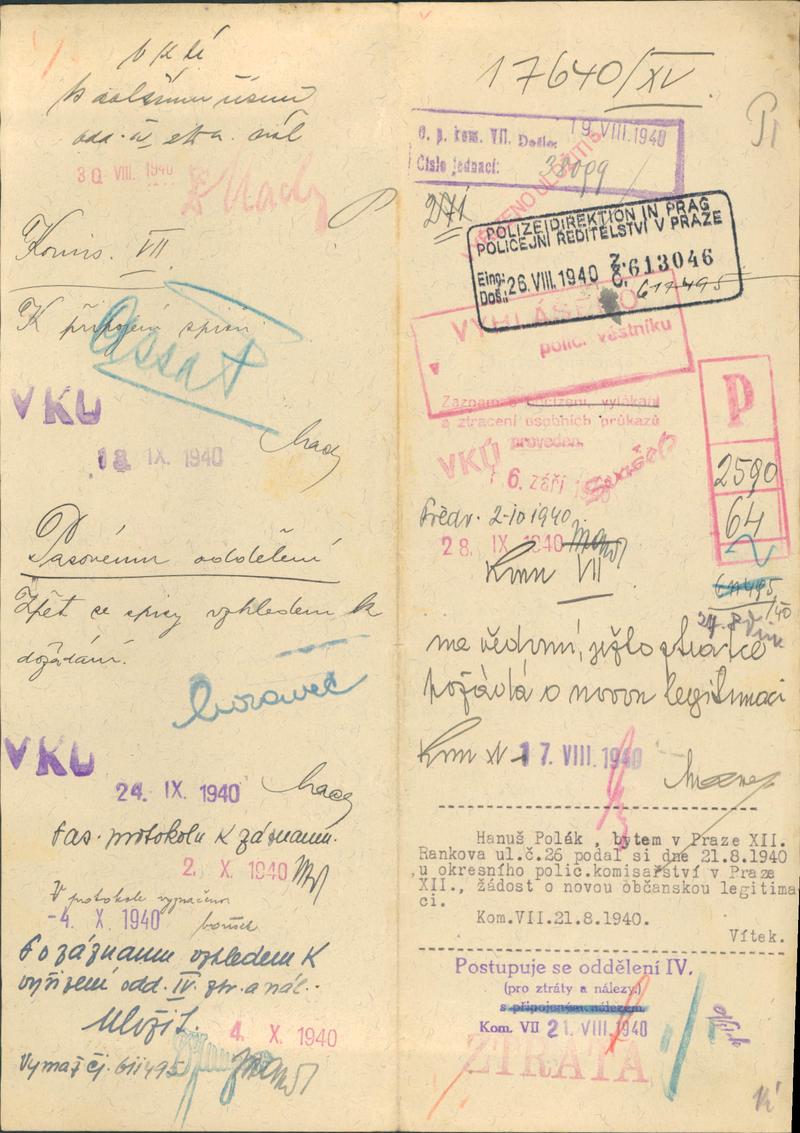 k dalšímu řízení
odd. IV ztr. a nál
30 VIII. 1940
Komis. VII
K připojení spisů
VKÚ
18. IX. 1940
Pasovému oddělení
Zpět se spisy vzhledem k
dožádání.
VKÚ
24. IX. 1940
Pas. protokolu k záznamu.
2. X. 1940
V protokole vyznačeno
-4. X. 1940
Po záznamu vzhledem k
vyřízení odd. IV. ztr. a nál.
Uložit.
4. X. 1940
Vymaž čj. 611495
17640/XV.
O. p. kom. VII. Došlo: 19 VIII. 1940
Číslo jednací:
POLIZEIDIREKTION IN PRAG
POLICEJNÍ ŘEDITELSTVÍ V PRAZE
Eing.:
Doš.: 26. VIII. 1940 Z. Č. 613046
VYHLÁŠENO
v polic. věstníku
Záznam o odcizení, vylákání
a ztracení osobních průkazů
proveden.
VKÚ
6. září
P
2590
64
Předv. 2-10 1940
28. IX 1940
Kom VII
na vědomí, ježto ztrátce
požádá o novou legitimaci
Kom XV 17. VIII. 1940
Hanuš Polák , bytem v Praze XII.
Rankova ul.č.26 podal si dne 21.8.1940
u okresního polic.komisařství v Praze
XII., žádost o novou občanskou legitima
ci.
Kom.VII.21.8.1940.
Vítek.
Postupuje se oddělení IV.
(pro ztráty a nálezy.)
s připojeným nálezem
Kom. VII 21. VIII. 1940
ZTRÁTA